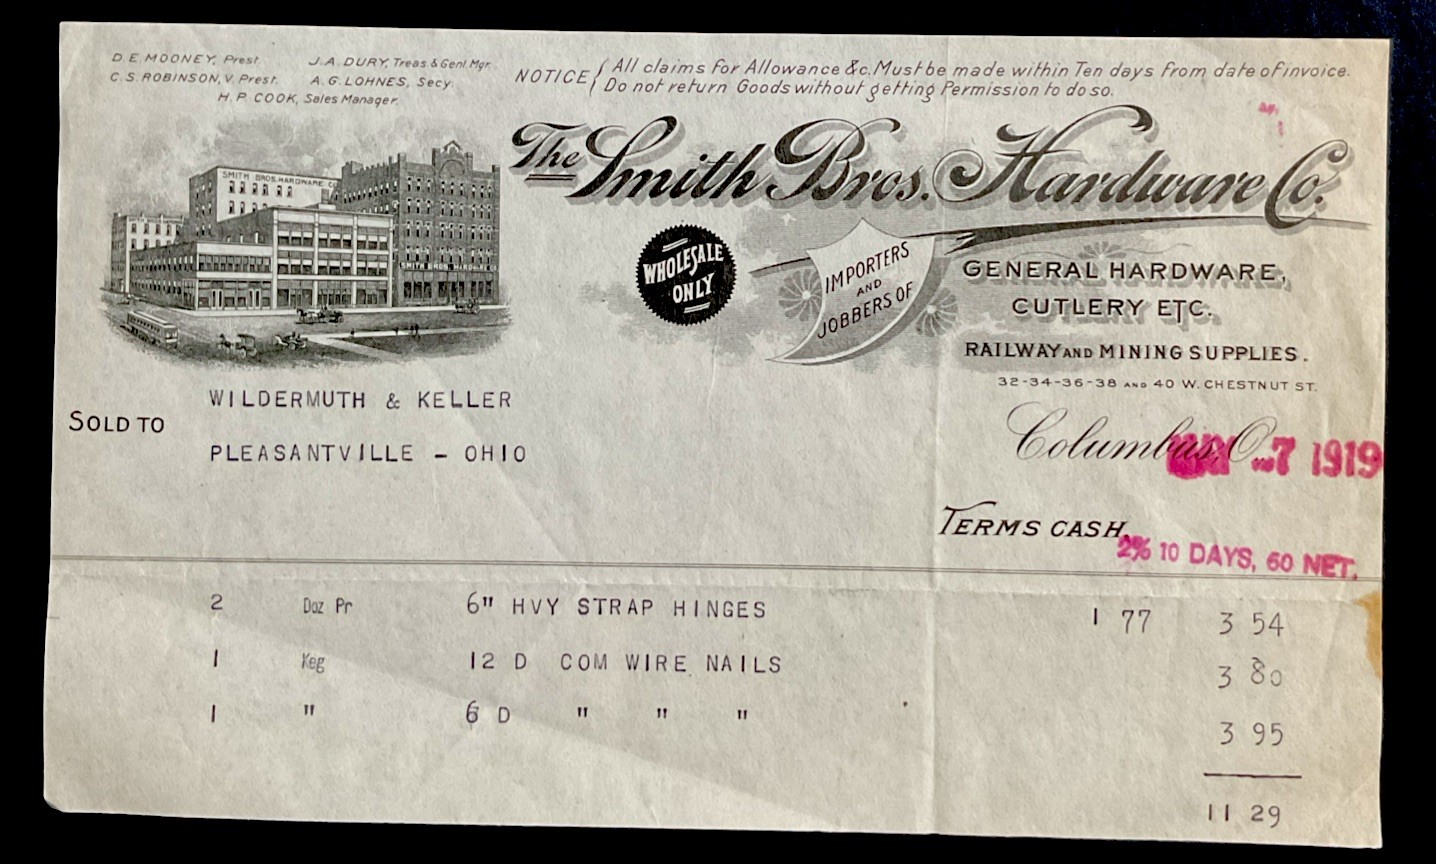 D. E. MOONEY, Prest. J. A. DURY, Treas. & Genl. Mgr.
C. S. ROBINSON, V. Prest. A. G. LOHNES, Secy.
H. P. COOK, Sales Manager.
NOTICE { All claims for Allowance &c. Must be made within Ten days from date of invoice.
Do not return Goods without getting Permission to do so.
The Smith Bros. Hardware Co.
SMITH BROS. HARDWARE CO
SMITH BROS. HARDWARE CO
WHOLESALE
ONLY
IMPORTERS
AND
JOBBERS OF
GENERAL HARDWARE,
CUTLERY ETC.
RAILWAY AND MINING SUPPLIES.
32-34-36-38 AND 40 W. CHESTNUT ST.
SOLD TO
WILDERMUTH & KELLER
PLEASANTVILLE - OHIO
Columbus, O. 7 1919
TERMS CASH.
2% 10 DAYS, 60 NET.
2 Doz Pr 6" HVY STRAP HINGES 1 77 3 54
1 Keg 12 D COM WIRE NAILS 3 80
1 " 6 D " " " 3 95
11 29